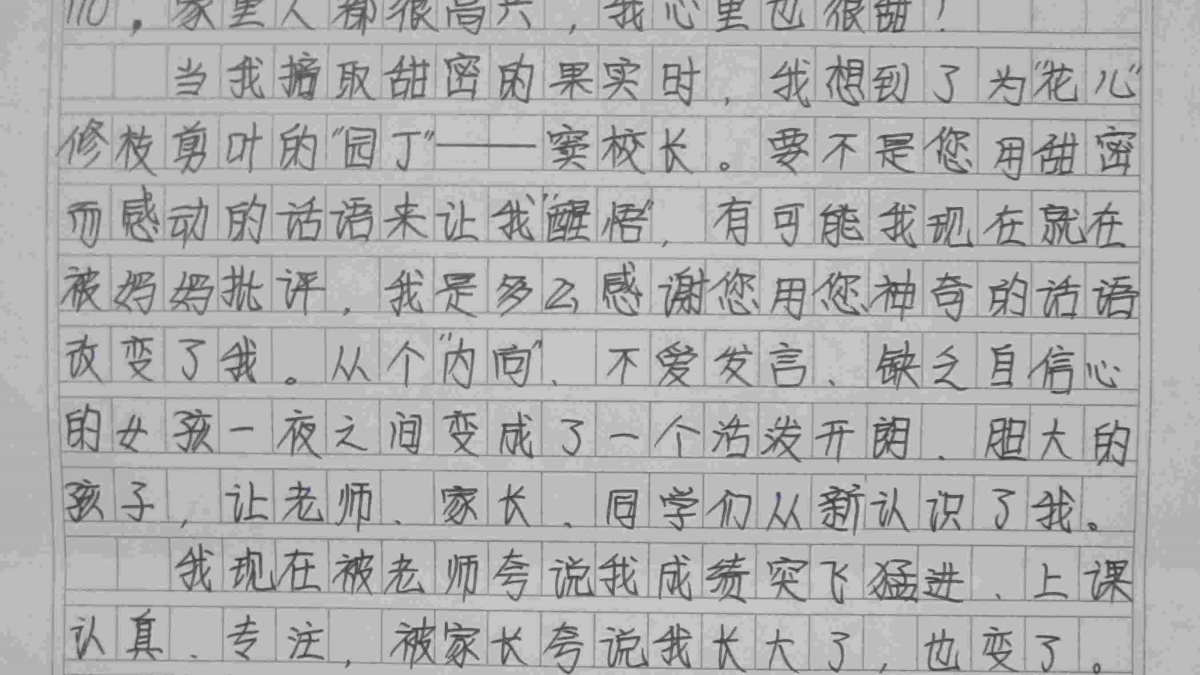 110，家里人都很高兴，我心里也很甜！
当我摘取甜密的果实时，我想到了为"花儿"
修枝剪叶的"园丁"——窦校长。要不是您用甜密
而感动的话语来让我"醒悟"，有可能我现在就在
被妈妈批评，我是多么感谢您用您神奇的话语
改变了我。从个"内向"、不爱发言、缺乏自信心
的女孩一夜之间变成了一个活泼开朗、胆大的
孩子，让老师、家长、同学们从新认识了我。
我现在被老师夸说我成绩突飞猛进、上课
认真、专注，被家长夸说我长大了，也变了。